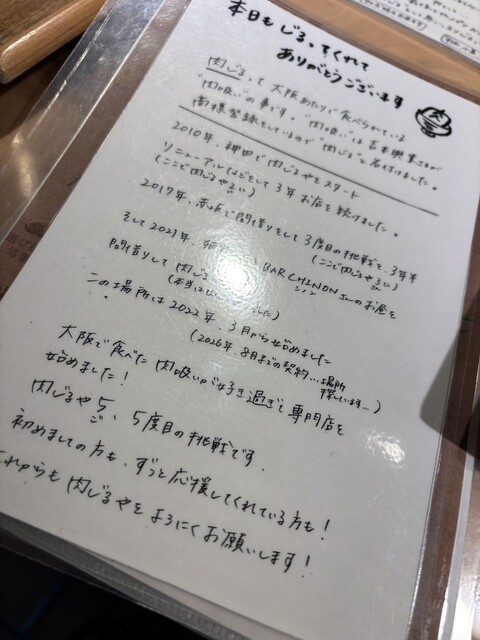 本日もじるってくれて
ありがとうございます
肉じるって大阪あたりで食べられている
"肉吸い"の事です。"肉吸い"は吉本興業さんが
商標登録をしているので"肉じる"と名付けました。
2010年、神田で肉じるやをスタート
リニューアルなどをして3年お店を続けました。
(ここで肉じるや
2017年、赤坂で間借りをして3度目の挑戦を、3年半
(ここで肉じるや
そして2021年、 BAR CHINON さんのお昼を
シノン
間借りして肉じる
この場所は2022年、3月から始めました
(2026年、8月までの契約…場所
探しています…)
大阪で食べた肉吸いが好き過ぎて専門店を
始めました!
肉じるや5、5度目の挑戦です。
ご
初めましての方も、ずっと応援してくれている方も!
これからも肉じるやをよろにくお願いします!
肉